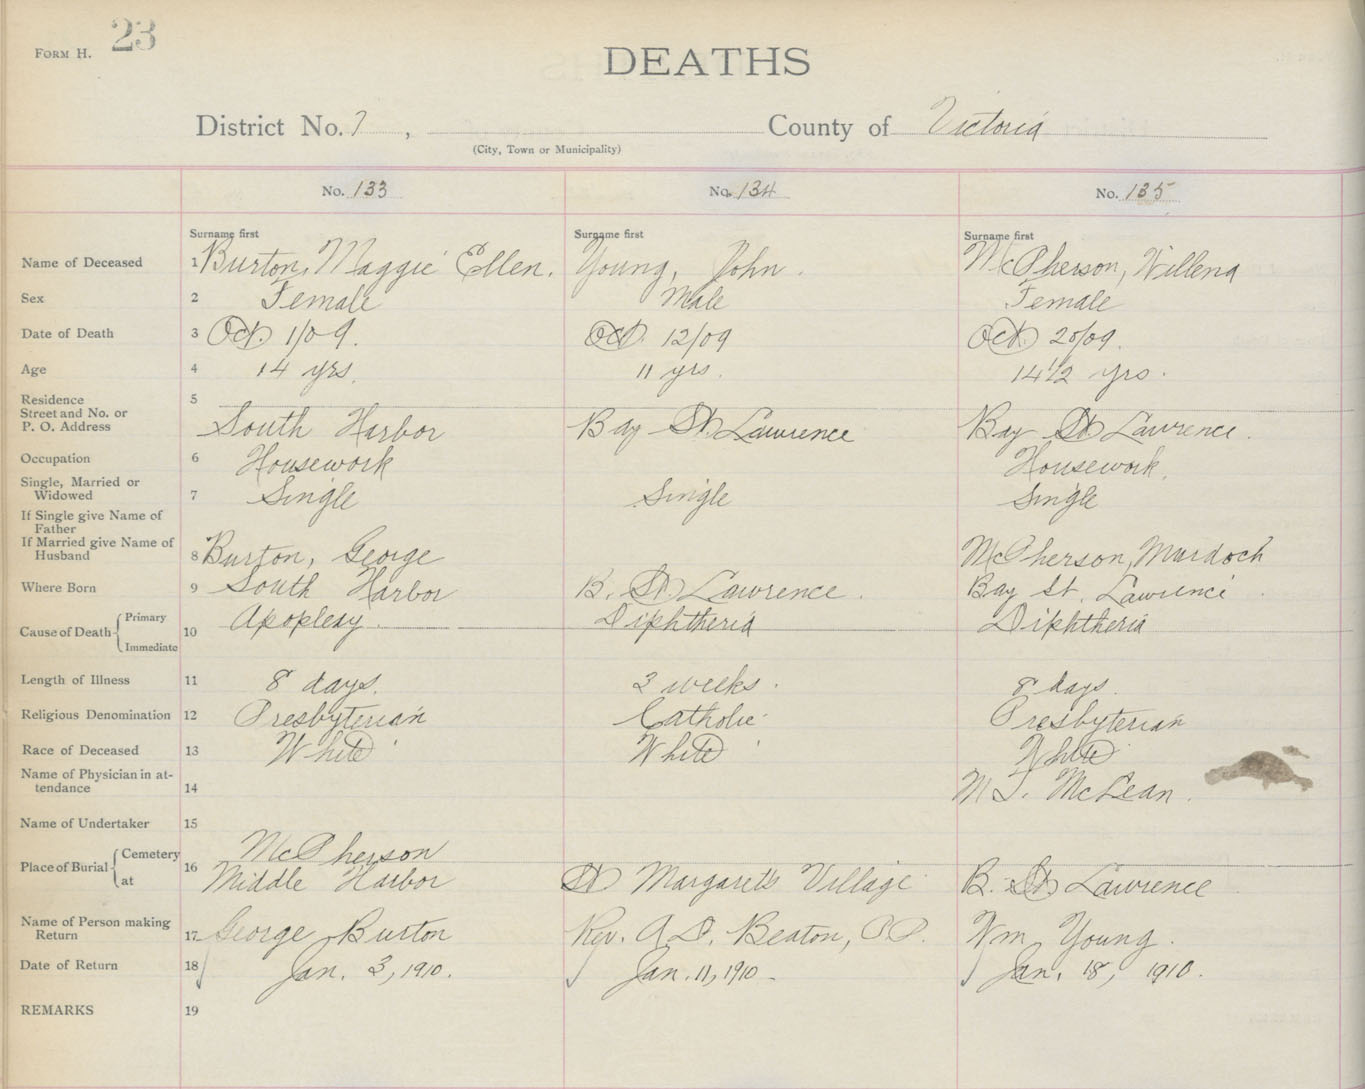 FORM H. 23
DEATHS
District No. 7, County of Victoria
(City, Town or Municipality)
No. 133 No. 134 No. 135
Surname first Surname first Surname first
Name of Deceased 1 Burton, Maggie Ellen. Young, John. McPherson, Willena
Sex 2 Female Male Female
Date of Death 3 Oct. 1/09. Oct. 12/09 Oct. 20/09.
Age 4 14 yrs. 11 yrs. 14 1/2 yrs.
Residence 5
Street and No. or
P. O. Address South Harbor Bay St. Lawrence Bay St. Lawrence.
Occupation 6 Housework Housework.
Single, Married or
Widowed 7 Single Single Single
If Single give Name of
Father
If Married give Name of
Husband 8 Burton, George McPherson, Murdoch
Where Born 9 South Harbor B. St. Lawrence. Bay St. Lawrence.
Cause of Death { Primary Apoplexy Diphtheria Diphtheria
10
Immediate
Length of Illness 11 8 days. 3 weeks. 8 days.
Religious Denomination 12 Presbyterian Catholic Presbyterian
Race of Deceased 13 White White White
Name of Physician in at-
tendance 14 M. J. McLean.
Name of Undertaker 15
Place of Burial { Cemetery McPherson
16
at Middle Harbor St Margarets Village B. St. Lawrence
Name of Person making
Return 17 George Burton Rev. A. D. Beaton, P.P. Wm. Young.
Date of Return 18 Jan. 3, 1910. Jan. 11, 1910. Jan. 18, 1910.
REMARKS 19